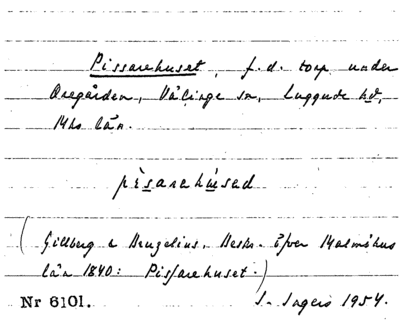 Pissarehuset, f.d. torp under
Öregården, Välinge sn, Luggude hd,
Mhs län.
pìsarehùsed
(Gillberg & Brugelius, Beskr. öfver Malmöhus
län 1840: Pissarehuset.)
Nr 6101. S. Ingers 1954.